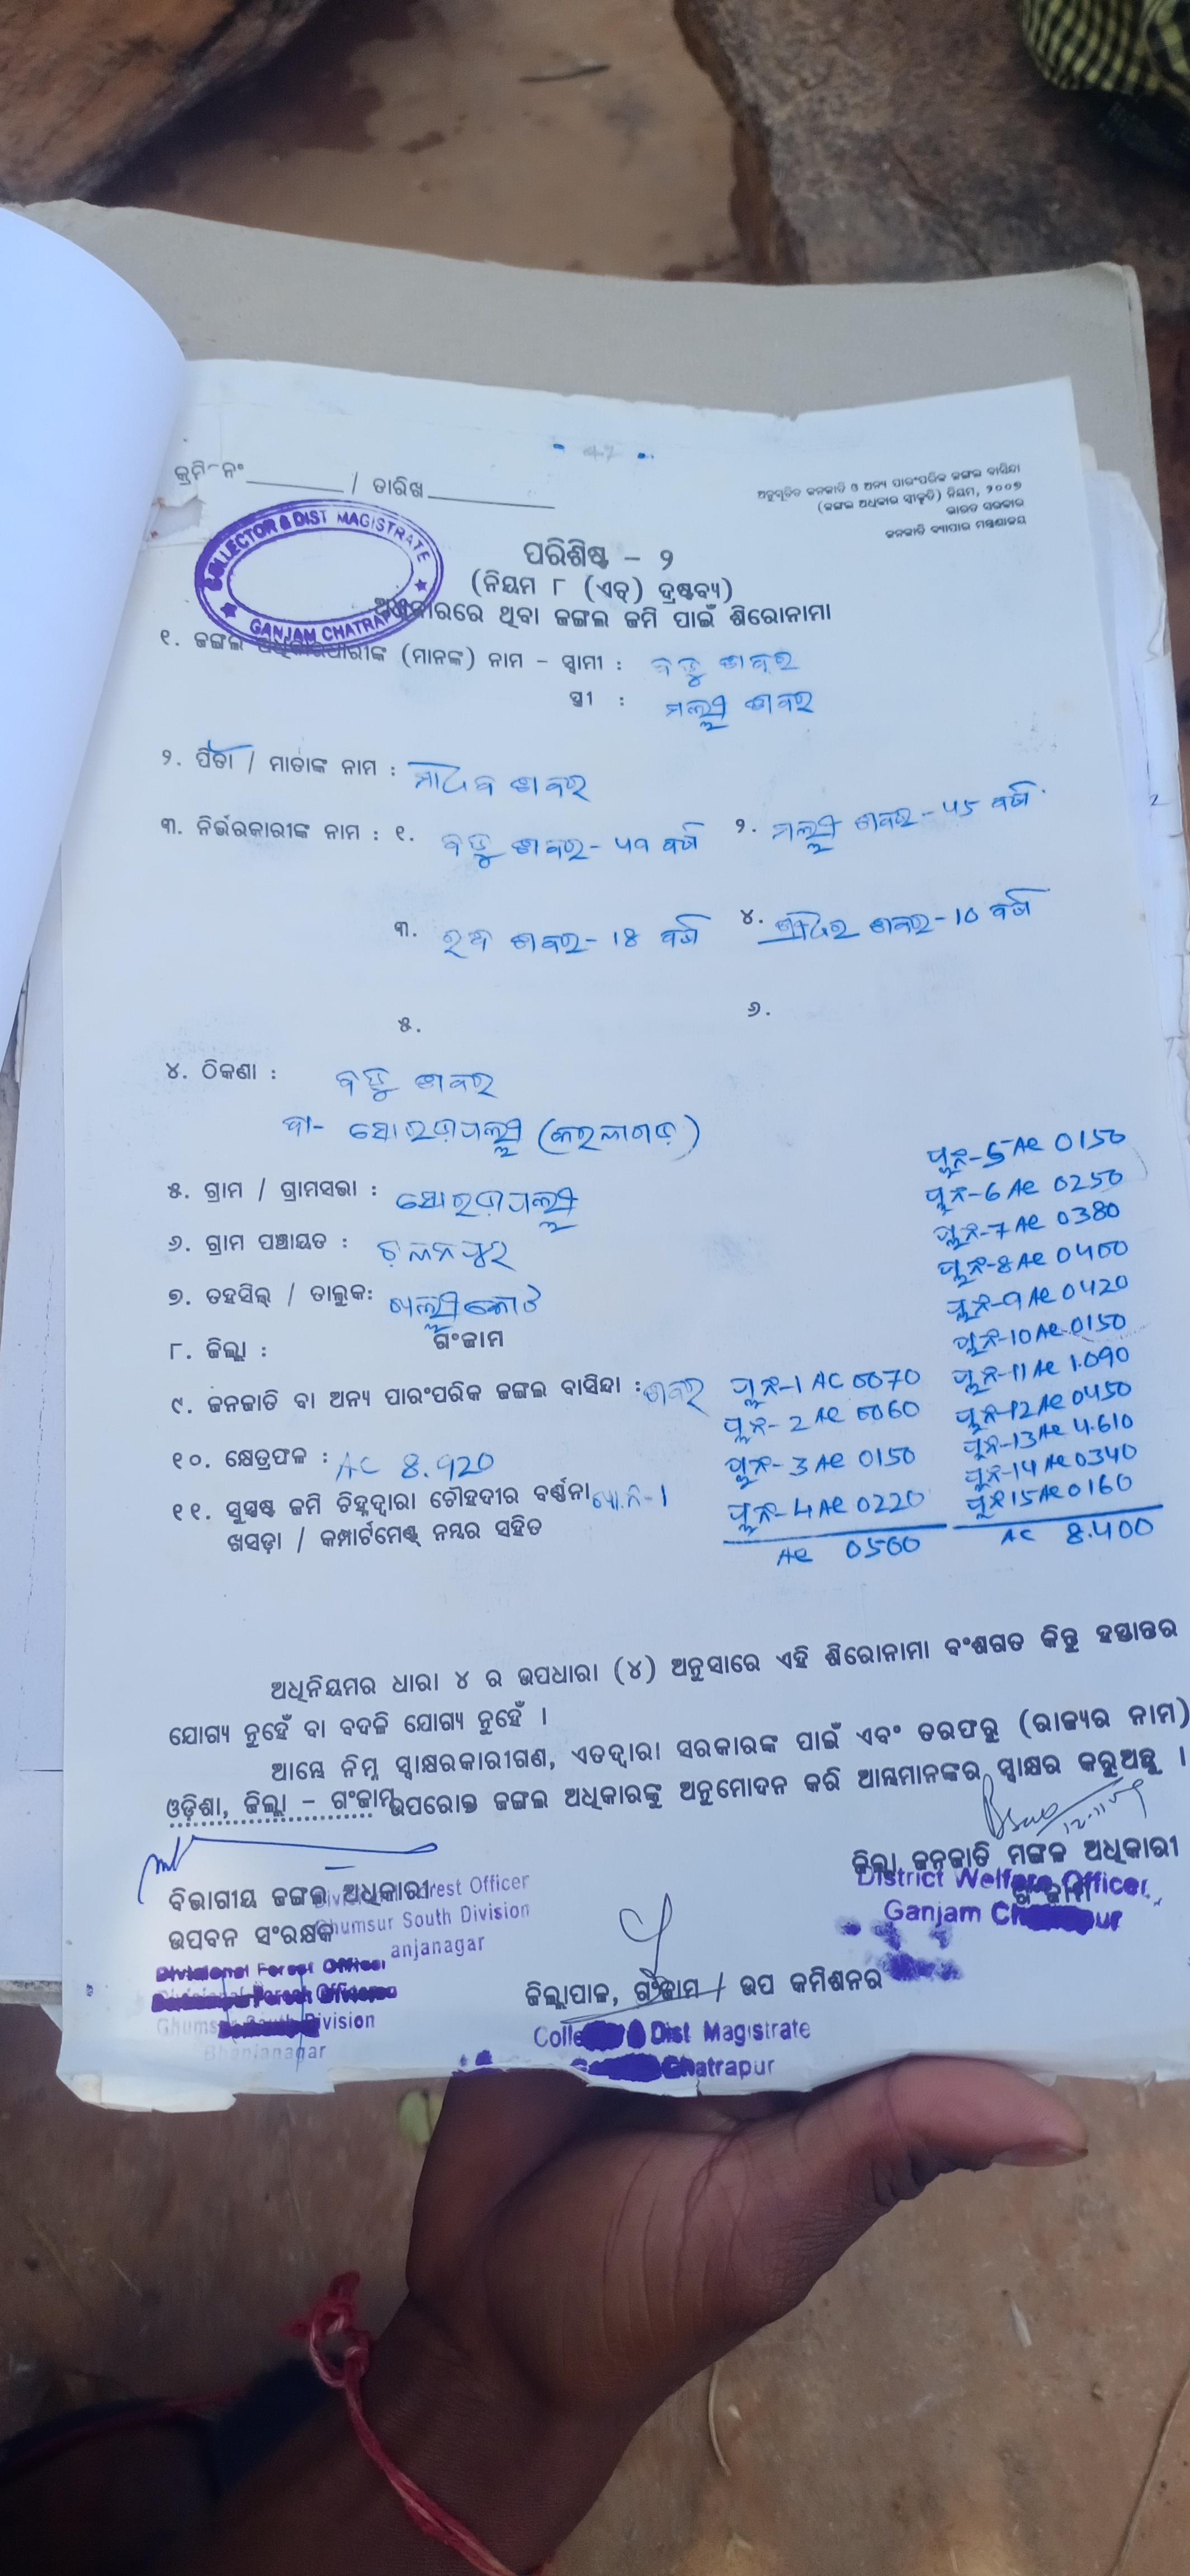 - 47 -
କ୍ରମିକ ନଂ / ତାରିଖ
ଅନୁସୂଚିତ ଜନଜାତି ଓ ଅନ୍ୟ ପାରଂପରିକ ଜଙ୍ଗଲ ବାସିନ୍ଦା
(ଜଙ୍ଗଲ ଅଧିକାର ସ୍ୱୀକୃତି) ନିୟମ, ୨୦୦୭
ଭାରତ ସରକାର
ଜନଜାତି ବ୍ୟାପାର ମନ୍ତ୍ରଣାଳୟ
COLLECTOR & DIST MAGISTRATE
GANJAM CHATRAPUR
ପରିଶିଷ୍ଟ – ୨
(ନିୟମ ୮ (ଏଚ୍) ଦ୍ରଷ୍ଟବ୍ୟ)
ଅଧିକାରରେ ଥିବା ଜଙ୍ଗଲ ଜମି ପାଇଁ ଶିରୋନାମା
୧. ଜଙ୍ଗଲ ଅଧିକାରଧାରୀଙ୍କ (ମାନଙ୍କ) ନାମ – ସ୍ୱାମୀ : ବଡୁ ଶବର
ସ୍ତ୍ରୀ : ମଲ୍ଲୀ ଶବର
୨. ପିତା / ମାତାଙ୍କ ନାମ : ମାଧବ ଶବର
୩. ନିର୍ଭରକାରୀଙ୍କ ନାମ : ୧. ବଡୁ ଶବର - ବର୍ଷ ୨. ମଲ୍ଲୀ ଶବର - 45 ବର୍ଷ
୩. ଶବର - 18 ବର୍ଷ ୪. ଶବର - 10 ବର୍ଷ
୫. ୬.
୪. ଠିକଣା : ବଡୁ ଶବର
ସୋରଡ଼ାପଲ୍ଲୀ
୫. ଗ୍ରାମ / ଗ୍ରାମସଭା : ସୋରଡ଼ାପଲ୍ଲୀ
୬. ଗ୍ରାମ ପଞ୍ଚାୟତ :
୭. ତହସିଲ୍ / ତାଲୁକ: ଖଲ୍ଲୀକୋଟ
୮. ଜିଲ୍ଲା : ଗଂଜାମ
୯. ଜନଜାତି ବା ଅନ୍ୟ ପାରଂପରିକ ଜଙ୍ଗଲ ବାସିନ୍ଦା : ଶବର
୧୦. କ୍ଷେତ୍ରଫଳ : AC 8.920
୧୧. ସୁସ୍ପଷ୍ଟ ଜମି ଚିହ୍ନଦ୍ୱାରା ଚୌହଦୀର ବର୍ଣ୍ଣନା
ଖସଡ଼ା / କମ୍ପାର୍ଟମେଣ୍ଟ୍ ନମ୍ବର ସହିତ
ପ୍ଲଟ-1 AC 0070
ପ୍ଲଟ-2 AC 0060
ପ୍ଲଟ-3 AC 0150
ପ୍ଲଟ-4 AC 0220
AC 0500
ପ୍ଲଟ-5 AC 0150
ପ୍ଲଟ-6 AC 0250
ପ୍ଲଟ-7 AC 0380
ପ୍ଲଟ-8 AC 0400
ପ୍ଲଟ-9 AC 0420
ପ୍ଲଟ-10 AC 0150
ପ୍ଲଟ-11 AC 1.090
ପ୍ଲଟ-12 AC 0450
ପ୍ଲଟ-13 AC 4.610
ପ୍ଲଟ-14 AC 0340
ପ୍ଲଟ 15 AC 0160
AC 8.400
ଅଧିନିୟମର ଧାରା ୪ ର ଉପଧାରା (୪) ଅନୁସାରେ ଏହି ଶିରୋନାମା ବଂଶଗତ କିନ୍ତୁ ହସ୍ତାନ୍ତର
ଯୋଗ୍ୟ ନୁହେଁ ବା ବଦଳି ଯୋଗ୍ୟ ନୁହେଁ ।
ଆମ୍ଭେ ନିମ୍ନ ସ୍ୱାକ୍ଷରକାରୀଗଣ, ଏତଦ୍ୱାରା ସରକାରଙ୍କ ପାଇଁ ଏବଂ ତରଫରୁ (ରାଜ୍ୟର ନାମ)
ଓଡ଼ିଶା, ଜିଲ୍ଲା – ଗଂଜାମ ଉପରୋକ୍ତ ଜଙ୍ଗଲ ଅଧିକାରଙ୍କୁ ଅନୁମୋଦନ କରି ଆମ୍ଭମାନଙ୍କର ସ୍ୱାକ୍ଷର କରୁଅଛୁ ।
ଜିଲ୍ଲା ଜନଜାତି ମଙ୍ଗଳ ଅଧିକାରୀ
ଗଂଜାମ
District Welfare Officer
Ganjam
ବିଭାଗୀୟ ଜଙ୍ଗଲ ଅଧିକାରୀ
ଉପବନ ସଂରକ୍ଷକ
Divisional Forest Officer
Ghumsur South Division
Bhanjanagar
ଜିଲ୍ଲାପାଳ, ଗଂଜାମ / ଉପ କମିଶନର
Collector & Dist Magistrate
Chatrapur